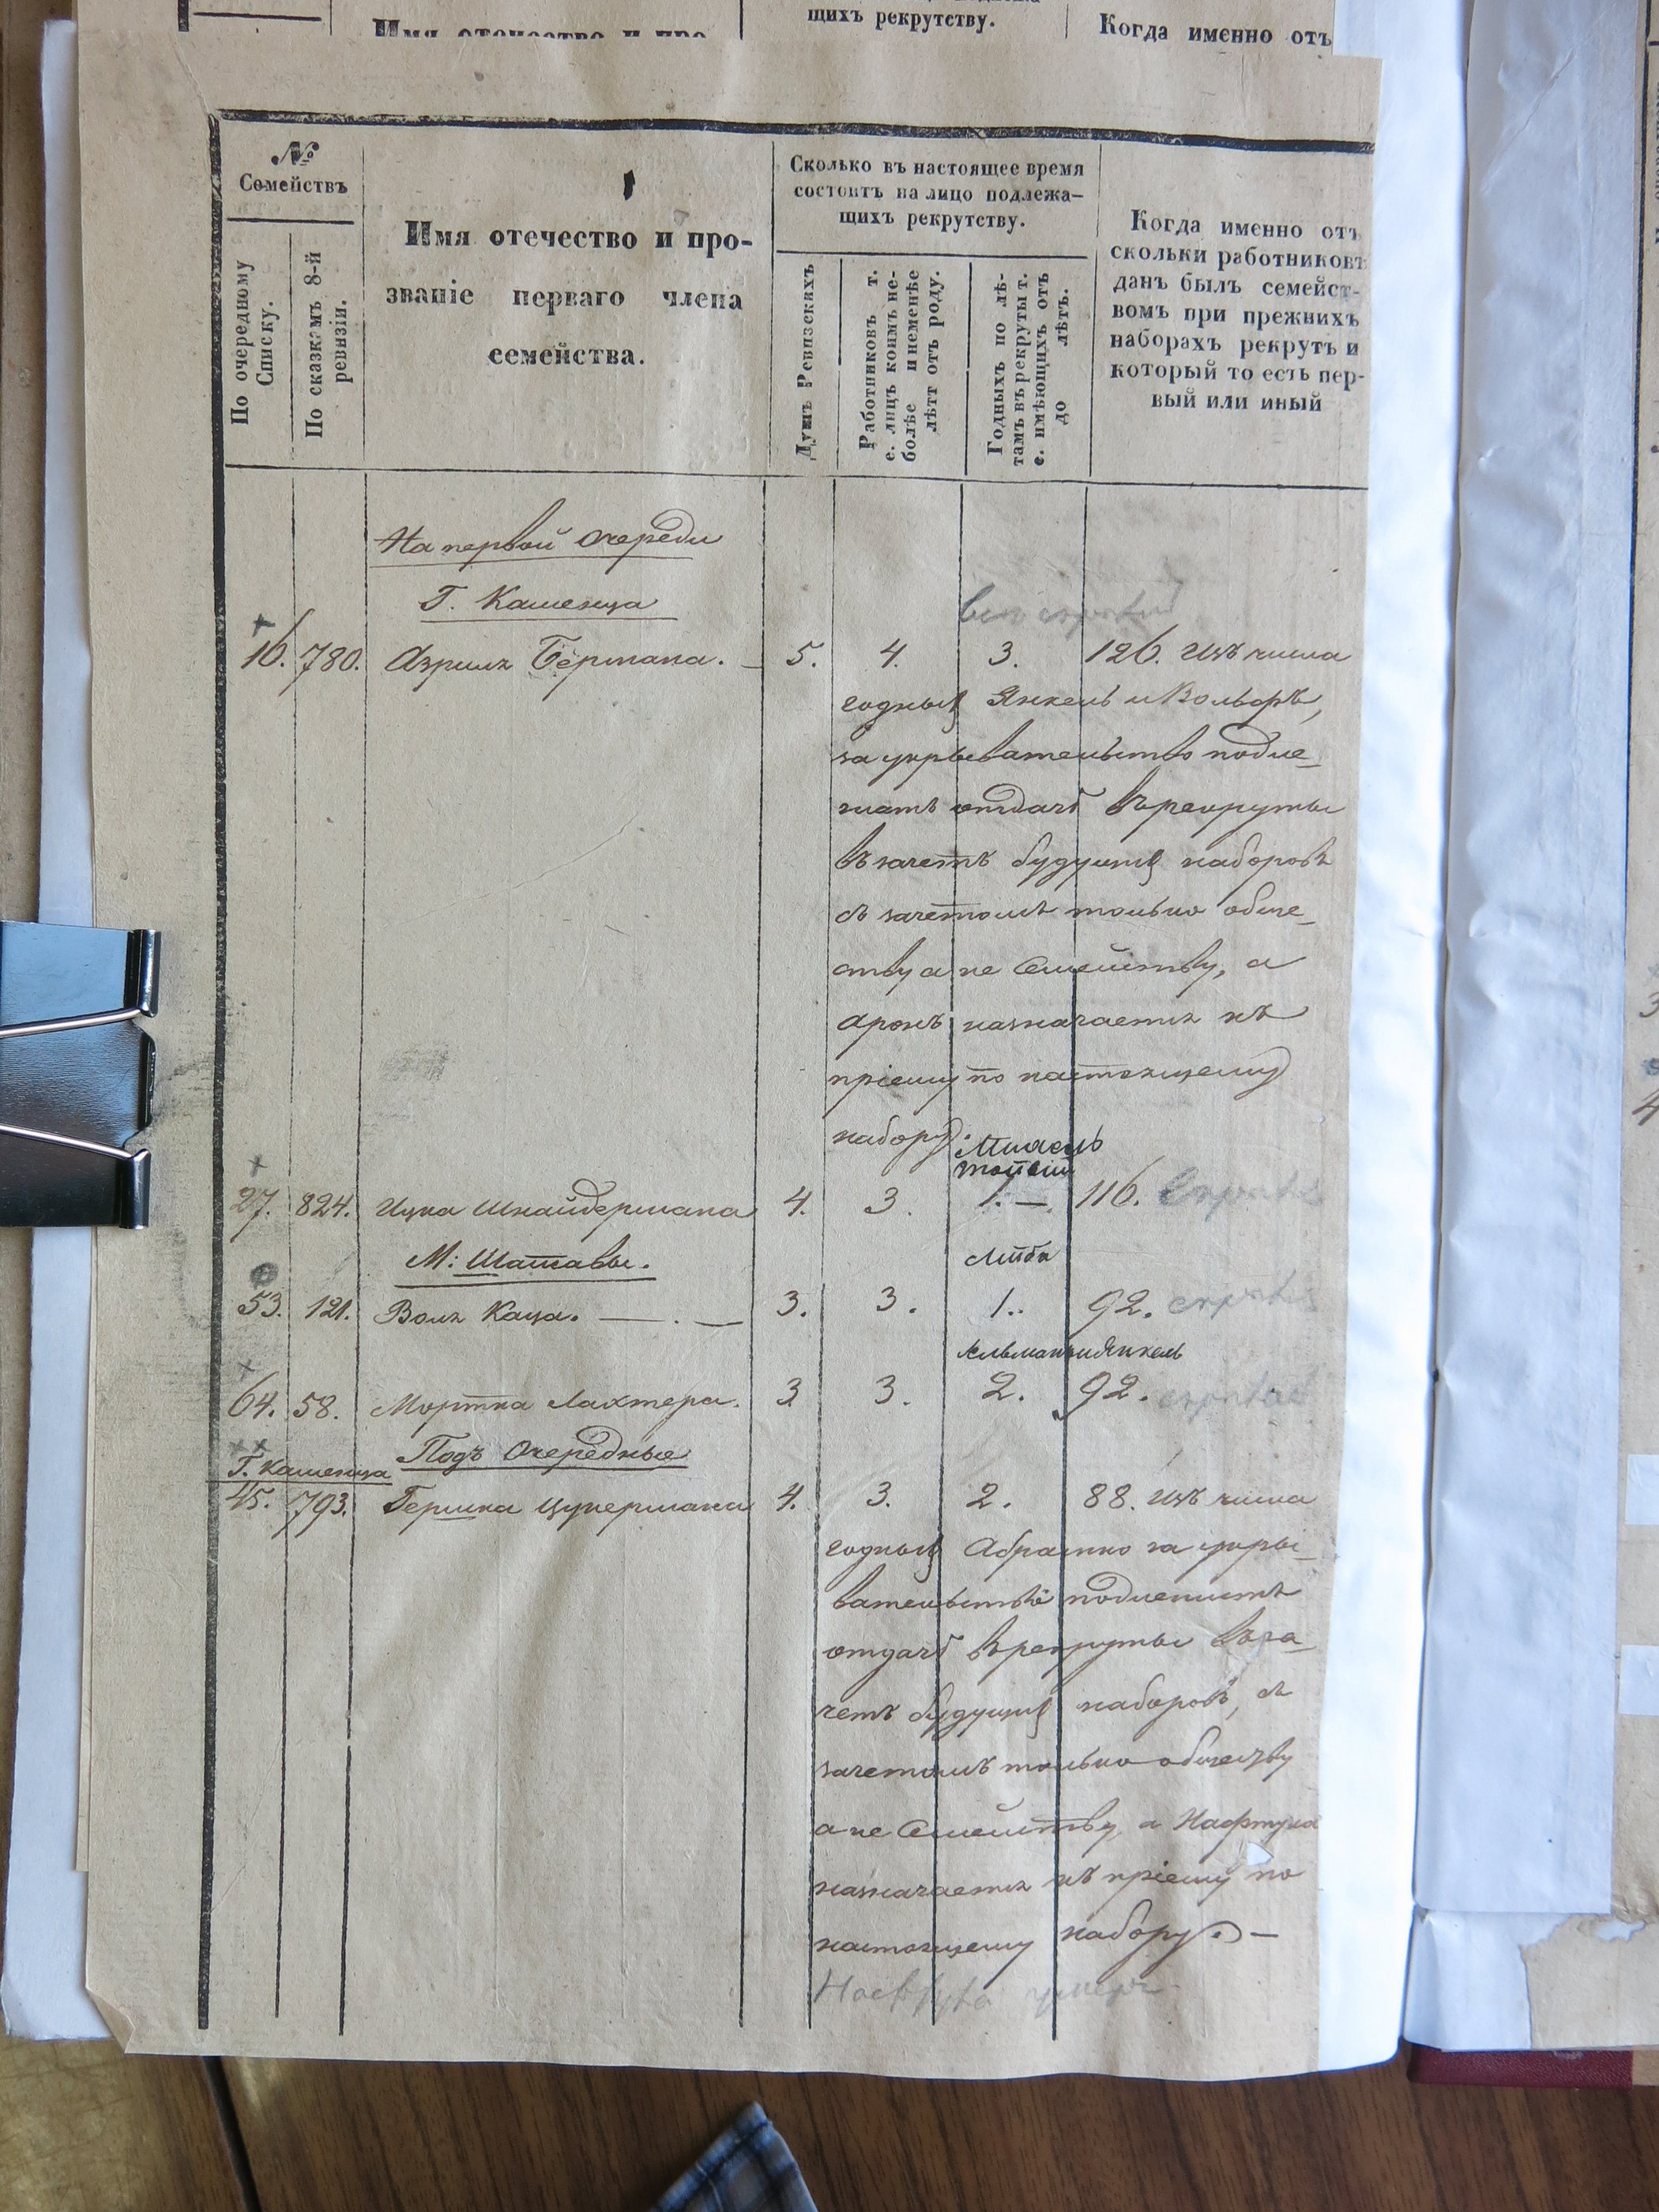 щихъ рекрутству.
Имя отечество и про-
Когда именно отъ
№
Семействъ
По очередному Списку.
По сказкамъ 8-й ревизіи.
Имя отечество и про-
званіе перваго члена
семейства.
Сколько въ настоящее время
состоитъ на лицо подлежа-
щихъ рекрутству.
Душъ Ревизскихъ
Работниковъ т.
е. лицъ коимъ не-
болѣе и неменѣе
лѣтт отъ роду.
Годныхъ по лѣ-
тамъ въ рекруты т.
е. имѣющихъ отъ
до лѣтъ.
Когда именно отъ
скольки работниковъ
данъ былъ семейст-
вомъ при прежнихъ
наборахъ рекрутъ и
который то есть пер-
вый или иный
На первой Очереди
Г. Каменца
16. 780. Азриль Бермана. — 5. 4. 3. 126. Изъ числа
годныхъ Янкель и Вольфъ,
за укрывательство подле-
жатъ отдачѣ въ рекруты
въ зачетъ будущихъ наборовъ
съ зачетомъ только обще-
ству а не Семейству, а
Аронъ назначается къ
пріему по настоящему
набору.
27. 824. Ицка Шнайдермана 4. 3. 1. — 116.
М: Шатавы.
Лейба
53. 121. Воль Каца. — . — 3. 3. 1.. 92.
Кельманъ и Янкель
64. 58. Мортка Лахтера. 3 3. 2. 92.
Подъ Очередные
Г. Каменца
45. 793. Гершка Цукермана 4. 3. 2. 88. Изъ числа
годныхъ Абрамко за укры-
вательство подлежитъ
отдачѣ въ рекруты въ за-
четъ будущихъ наборовъ, съ
зачетомъ только обществу
а не Семейству, а Нафтула
назначается къ пріему по
настоящему набору. —